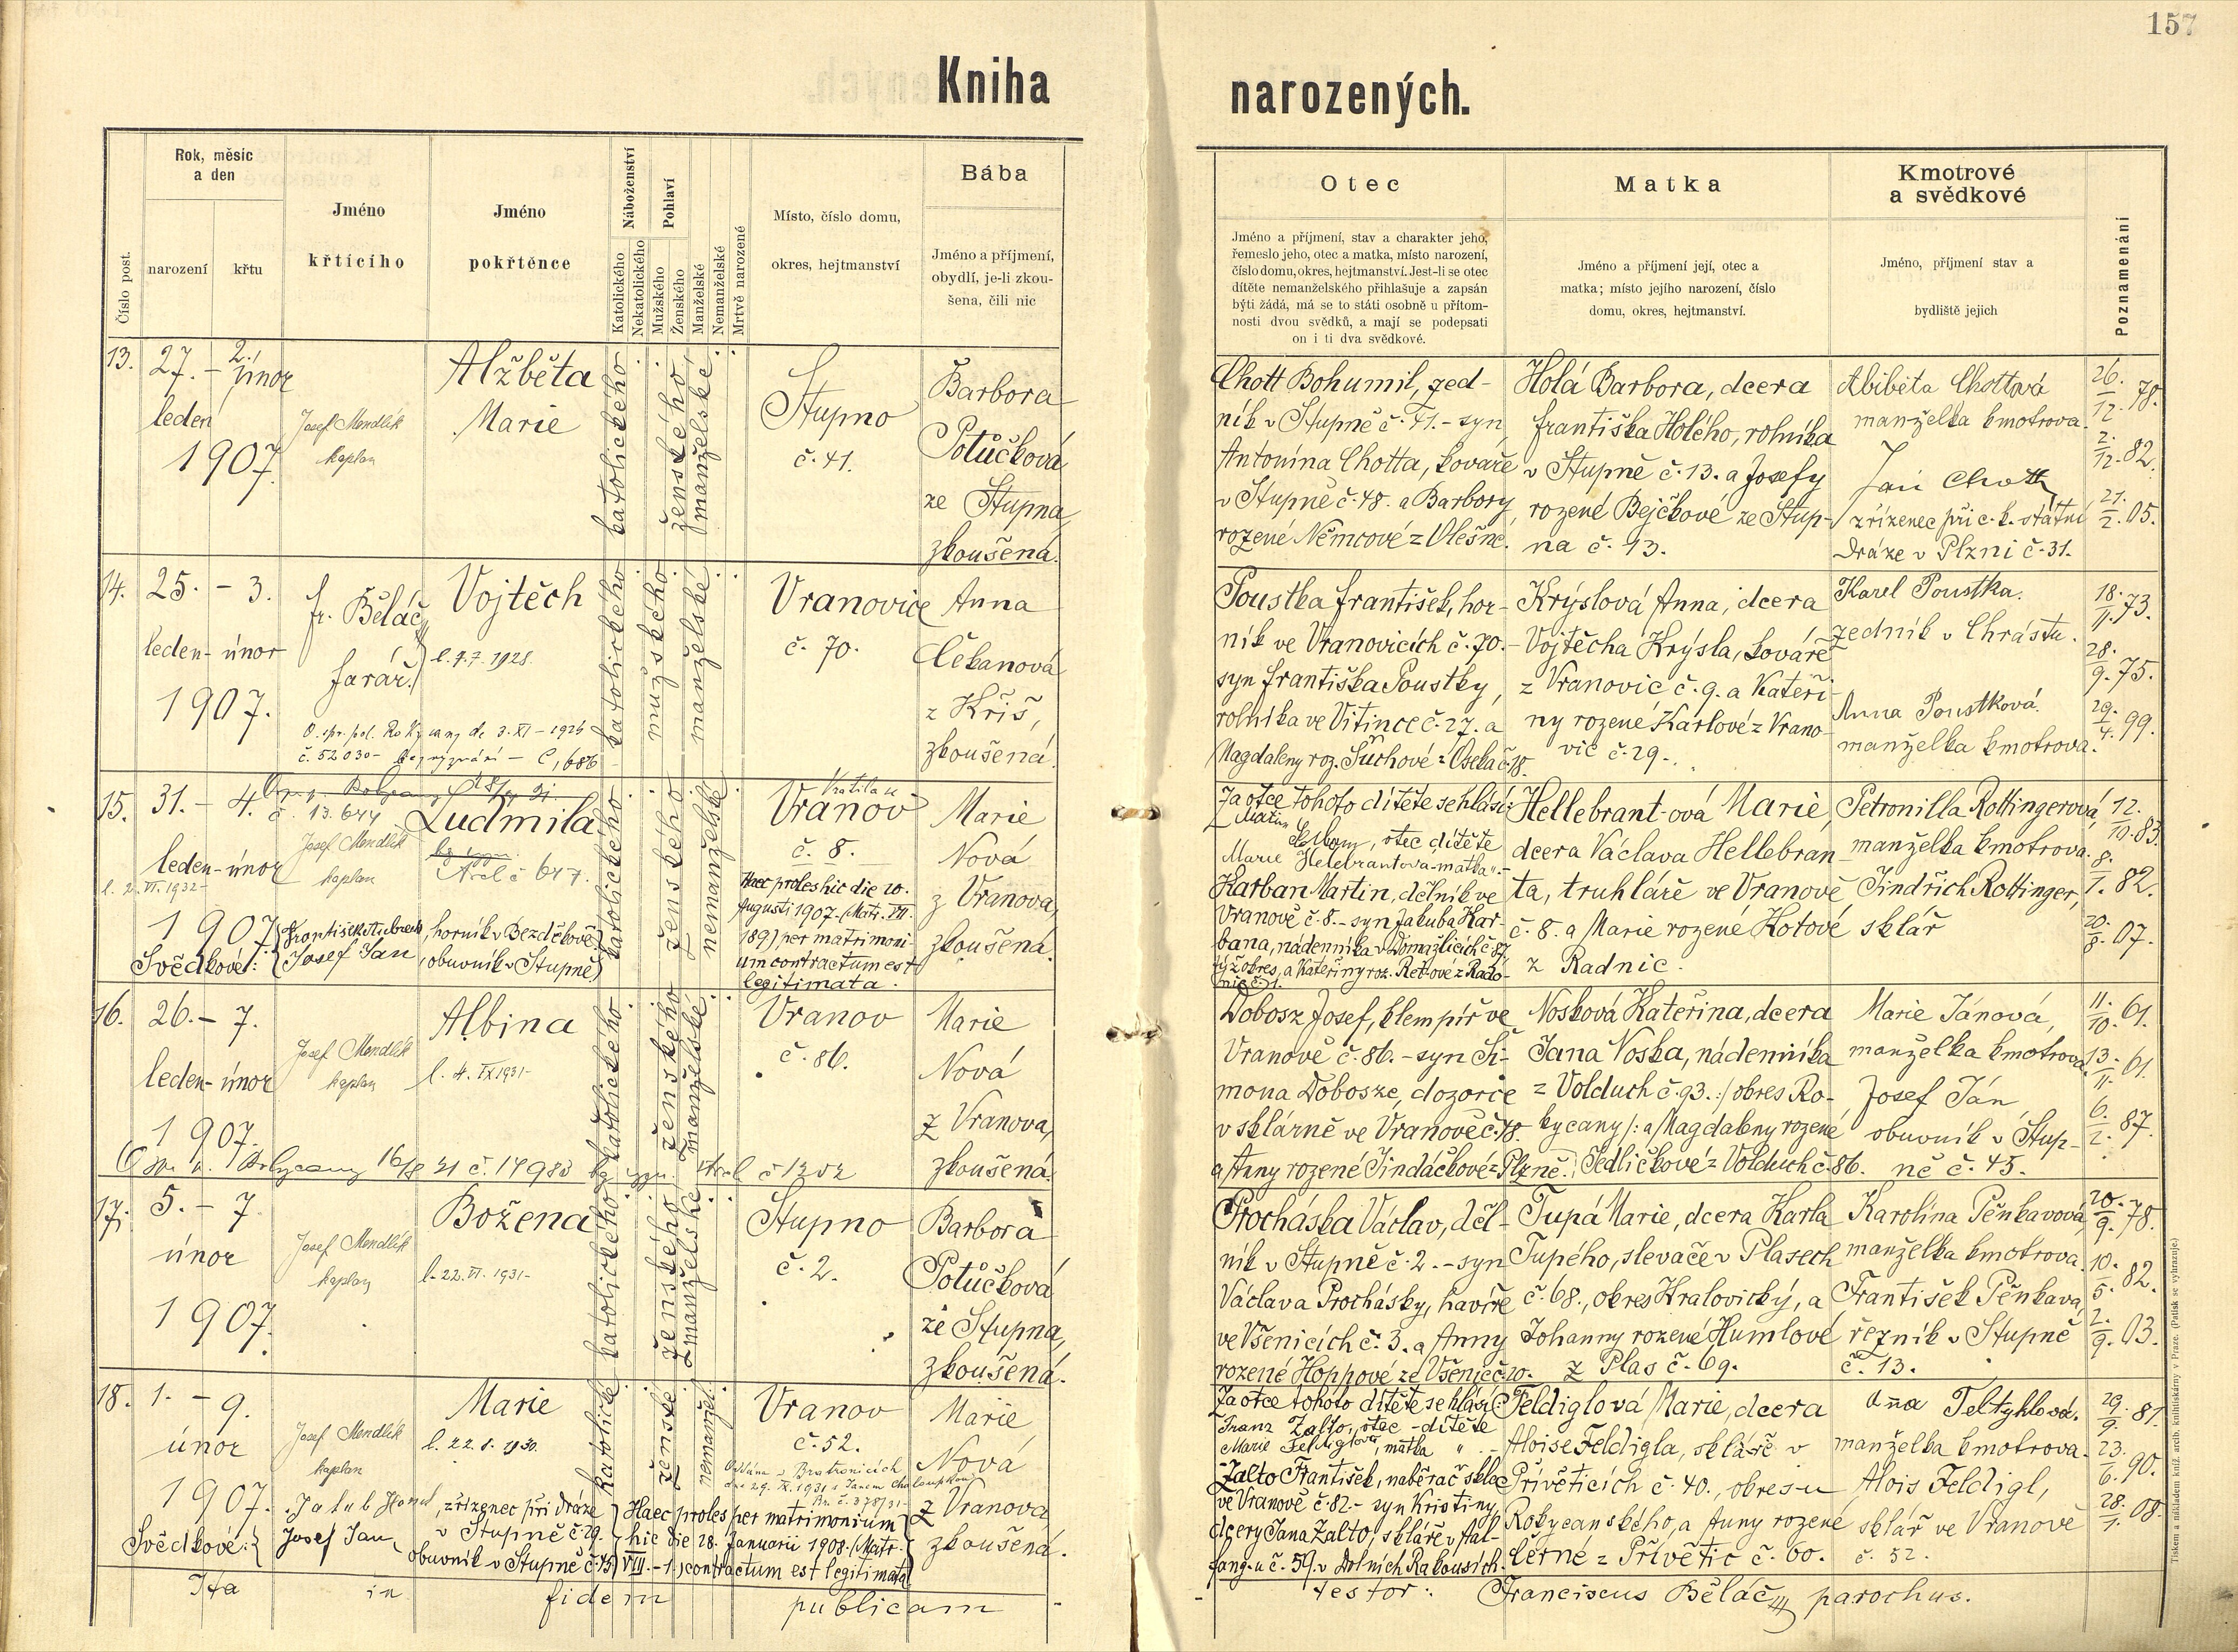 157
Kniha narozených.
Číslo post.
Rok, měsic a den
narození
křtu
Jméno křtícího
Jméno pokřtěnce
Náboženství
Katolického
Nekatolického
Pohlaví
Mužského
Ženského
Manželské
Nemanželské
Mrtvě narozené
Místo, číslo domu, okres, hejtmanství
Bába
Jméno a příjmení, obydlí, je-li zkoušena, čili nic
Otec
Jméno a příjmení, stav a charakter jeho,
řemeslo jeho, otec a matka, místo narození,
číslo domu, okres, hejtmanství. Jest-li se otec
dítěte nemanželského přihlašuje a zapsán
býti žádá, má se to státi osobně u přítom-
nosti dvou svědků, a mají se podepsati
on i ti dva svědkové.
Matka
Jméno a příjmení její, otec a
matka; místo jejího narození, číslo
domu, okres, hejtmanství.
Kmotrové a svědkové
Jméno, příjmení stav a
bydliště jejich
Poznamenání
13.
27. - 2.
leden únor
1907.
Josef Mendlík
kaplan
Alžběta
Marie
katolického
ženského
manželské
Stupno
č. 41.
Barbora
Potůčková
ze Stupna
zkoušená.
Chott Bohumil, zed-
ník v Stupně č. 41. - syn
Antonína Chotta, kováře
v Stupně č. 48. a Barbory
rozené Němcové z Olešné.
Holá Barbora, dcera
Františka Holého, rolníka
v Stupně č. 13. a Josefy
rozené Bejčkové ze Stup-
na č. 13.
Chottová
manželka kmotrova.
Jan Chott
zřízenec při c. k. státní
dráze v Plzni č. 31.
26./12. 78.
2./12. 82.
21./2. 05.
14.
25. - 3.
leden - únor
1907.
Fr. Běláč
farář.
Vojtěch
l. 7.7. 1928.
č. 52030 - bez vyznání - C, 686
katolického
mužského
manželské
Vranovice
č. 70.
Anna
Čekanová
z Kříš,
zkoušená.
Poustka František, hor-
ník ve Vranovicích č. 70. -
syn Františka Poustky,
rolníka ve Vitince č. 27. a
Magdaleny roz. Suchové z Oseka č. 18.
Krýslová Anna, dcera
Vojtěcha Krýsla, kováře
z Vranovic č. 9. a Kateři-
ny rozené Karlové z Vrano-
vic č. 29.
Karel Poustka.
zedník v Chrástu.
Anna Poustková.
manželka kmotrova.
18./11. 73.
28./9. 75.
29./4. 99.
15.
31. - 4.
leden - únor
1907
č. 13.644
Josef Mendlík
kaplan
Ludmila
l. 2. VI. 1932 -
Svědkové:
horník v Bezděkově
Josef Jan, obuvník v Stupně
katolického
ženského
nemanželské
Vranov
č. 8.
Haec proles hic die 20.
Augusti 1907. (Matr. VII.
189) per matrimoni-
um contractum est
legitimata.
Marie
Nová
z Vranova,
zkoušená.
Za otce tohoto dítěte se hlásí:
otec dítěte
Marie Helebrantova - matka " -
Karban Martin, dělník ve
Vranově č. 8. - syn Jakuba Kar-
bana, nádenníka v Domažlicích č. 87.
týž okres, a Kateřiny roz.
Hellebrant-ová Marie,
dcera Václava Hellebran-
ta, truhláře ve Vranově
č. 8. a Marie rozené Kotové
z Radnic.
Petronilla Rottingerová,
manželka kmotrova.
Jindřich Rottinger,
sklář
12./10. 83.
8./1. 82.
20./8. 07.
16.
26. - 7.
leden - únor
1907.
Josef Mendlík
kaplan
Albina
l. 4. IX 1931 -
katolického
ženského
manželské
Vranov
č. 86.
Marie
Nová
z Vranova,
zkoušená.
Dobosz Josef, klempíř ve
Vranově č. 86. - syn Ši-
mona Dobosze, dozorce
v sklárně ve Vranově č. 78.
a Anny rozené Jindáčkové z Plzně.
Nosková Kateřina, dcera
Jana Noska, nádenníka
z Volduch č. 93. :/ okres Ro-
kycany /: a Magdaleny rozené
Sedličkové z Volduch č. 86.
Marie Jánová,
manželka kmotrova
Josef Ján
obuvník v Stup-
ně č. 45.
11./10. 61.
13./11. 61.
6./2. 87.
17.
5. - 7.
únor
1907.
Josef Mendlík
kaplan
Božena
l. 22. VI. 1931 -
katolického
ženského
manželské
Stupno
č. 2.
Barbora
Potůčková
ze Stupna,
zkoušená.
Procháska Václav, děl-
ník v Stupně č. 2. - syn
Václava Prochásky, havíře
ve Všenicích č. 3. a Anny
rozené Hoppové ze Všenic č. 20.
Tupá Marie, dcera Karla
Tupého, slevače v Plasech
č. 68., okres Kralovický, a
Johanny rozené Humlové
z Plas č. 69.
Karolína Pěnkavová,
manželka kmotrova.
František Pěnkava
řezník v Stupně
č. 13.
20./9. 78.
10./5. 82.
2./9. 03.
18.
1. - 9.
únor
1907.
Josef Mendlík
kaplan
Marie
l. 22. 8. 1930.
Svědkové:
zřízenec při dráze
v Stupně č. 29.
Josef Jan
obuvník v Stupně č. 45
katolické
ženské
nemanžel.
Vranov
č. 52.
Haec proles per matrimonium
hic die 28. Januarii 1908. (Matr.
VIII. - 1.) contractum est legitimata
Marie
Nová
z Vranova
zkoušená.
Za otce tohoto dítěte se hlásí:
Franz Zalto, otec - dítěte
Marie Feldiglova, matka " . -
Zalto František, naběrač skla
ve Vranově č. 82. - syn Kristiny,
dcery Jana Zalto, skláře v
č. 59. v Dolních Rakousích.
Feldiglová Marie, dcera
Aloise Feldigla, skláře v
Přívěticích č. 40., okres-u
Rokycanského, a Anny rozené
Černé z Přívětic č. 60.
Anna Feltyklová.
manželka kmotrova.
Alois Feldigl,
sklář ve Vranově
č. 52.
29./9. 81.
23./6. 90.
28./1. 08.
Ita in fidem publicam testor: Franciscus Běláč parochus.
Tiskem a nákladem kníž. arcib. knihtiskárny v Praze. (Patisk se vyhrazuje.)